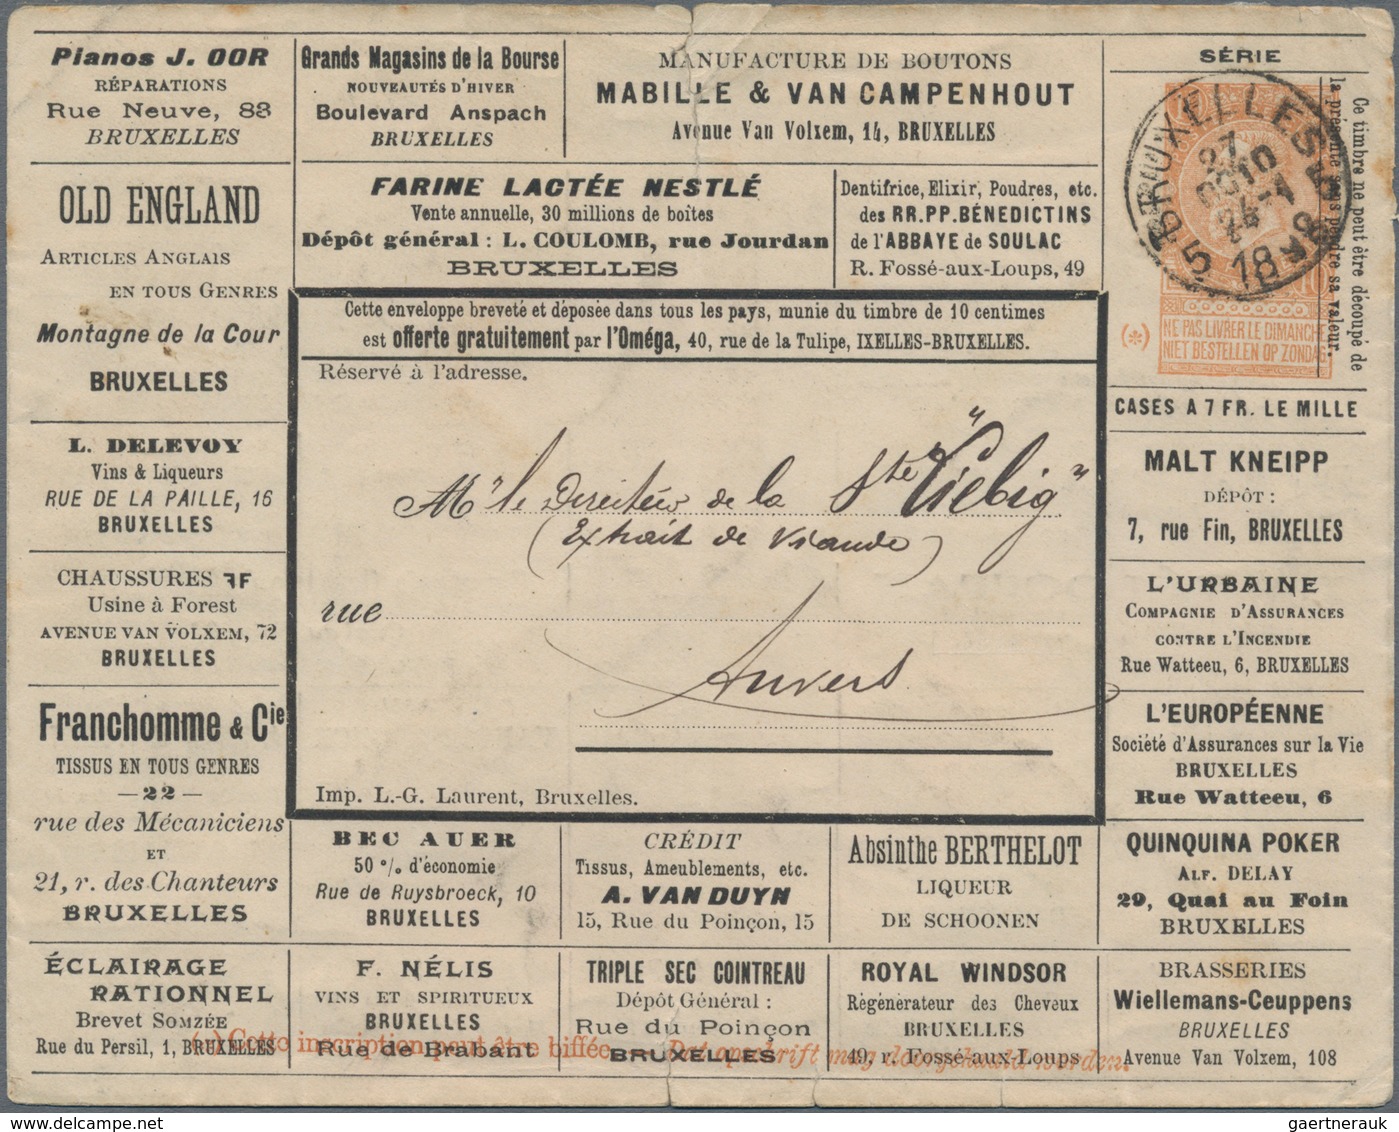 Pianos J. OOR
RÉPARATIONS
Rue Neuve, 83
BRUXELLES
Grands Magasins de la Bourse
NOUVEAUTÉS D'HIVER
Boulevard Anspach
BRUXELLES
MANUFACTURE DE BOUTONS
MABILLE & VAN CAMPENHOUT
Avenue Van Volxem, 14, BRUXELLES
SÉRIE
Ce timbre ne peut être découpé de
la présente sans perdre sa valeur.
BRUXELLES 5
27
OCT 10
5 18
NE PAS LIVRER LE DIMANCHE
(*) NIET BESTELLEN OP ZONDAG
OLD ENGLAND
ARTICLES ANGLAIS
EN TOUS GENRES
Montagne de la Cour
BRUXELLES
FARINE LACTÉE NESTLÉ
Vente annuelle, 30 millions de boîtes
Dépôt général : L. COULOMB, rue Jourdan
BRUXELLES
Dentifrice, Elixir, Poudres, etc.
des RR.PP. BÉNEDICTINS
de l'ABBAYE de SOULAC
R. Fossé-aux-Loups, 49
Cette enveloppe breveté et déposée dans tous les pays, munie du timbre de 10 centimes
est offerte gratuitement par l'Oméga, 40, rue de la Tulipe, IXELLES-BRUXELLES.
Réservé à l'adresse.
Mr le Directeur de la Ste "Liebig"
(Extrait de Viande)
rue
Anvers
Imp. L.-G. Laurent, Bruxelles.
L. DELEVOY
Vins & Liqueurs
RUE DE LA PAILLE, 16
BRUXELLES
CHAUSSURES FF
Usine à Forest
AVENUE VAN VOLXEM, 72
BRUXELLES
Franchomme & Cie
TISSUS EN TOUS GENRES
— 22 —
rue des Mécaniciens
ET
21, r. des Chanteurs
BRUXELLES
CASES A 7 FR. LE MILLE
MALT KNEIPP
DÉPÔT :
7, rue Fin, BRUXELLES
L'URBAINE
COMPAGNIE D'ASSURANCES
CONTRE L'INCENDIE
Rue Watteeu, 6, BRUXELLES
L'EUROPÉENNE
Société d'Assurances sur la Vie
BRUXELLES
Rue Watteeu, 6
BEC AUER
50 % d'économie
Rue de Ruysbroeck, 10
BRUXELLES
CRÉDIT
TISSUS, AMEUBLEMENTS, ETC.
A. VAN DUYN
15, Rue du Poinçon, 15
Absinthe BERTHELOT
LIQUEUR
DE SCHOONEN
QUINQUINA POKER
ALF. DELAY
29, Quai au Foin
BRUXELLES
ÉCLAIRAGE
RATIONNEL
Brevet SOMZÉE
Rue du Persil, 1, BRUXELLES
F. NÉLIS
VINS ET SPIRITUEUX
BRUXELLES
Rue de Brabant
TRIPLE SEC COINTREAU
Dépôt Général :
Rue du Poinçon
BRUXELLES
ROYAL WINDSOR
Régénérateur des Cheveux
BRUXELLES
49, r. Fossé-aux-Loups
BRASSERIES
Wiellemans-Ceuppens
BRUXELLES
Avenue Van Volxem, 108
(*) Cette inscription peut être biffée. — Dat opschrift mag doorgehaald worden.
gaertnerauk / delcampe.net